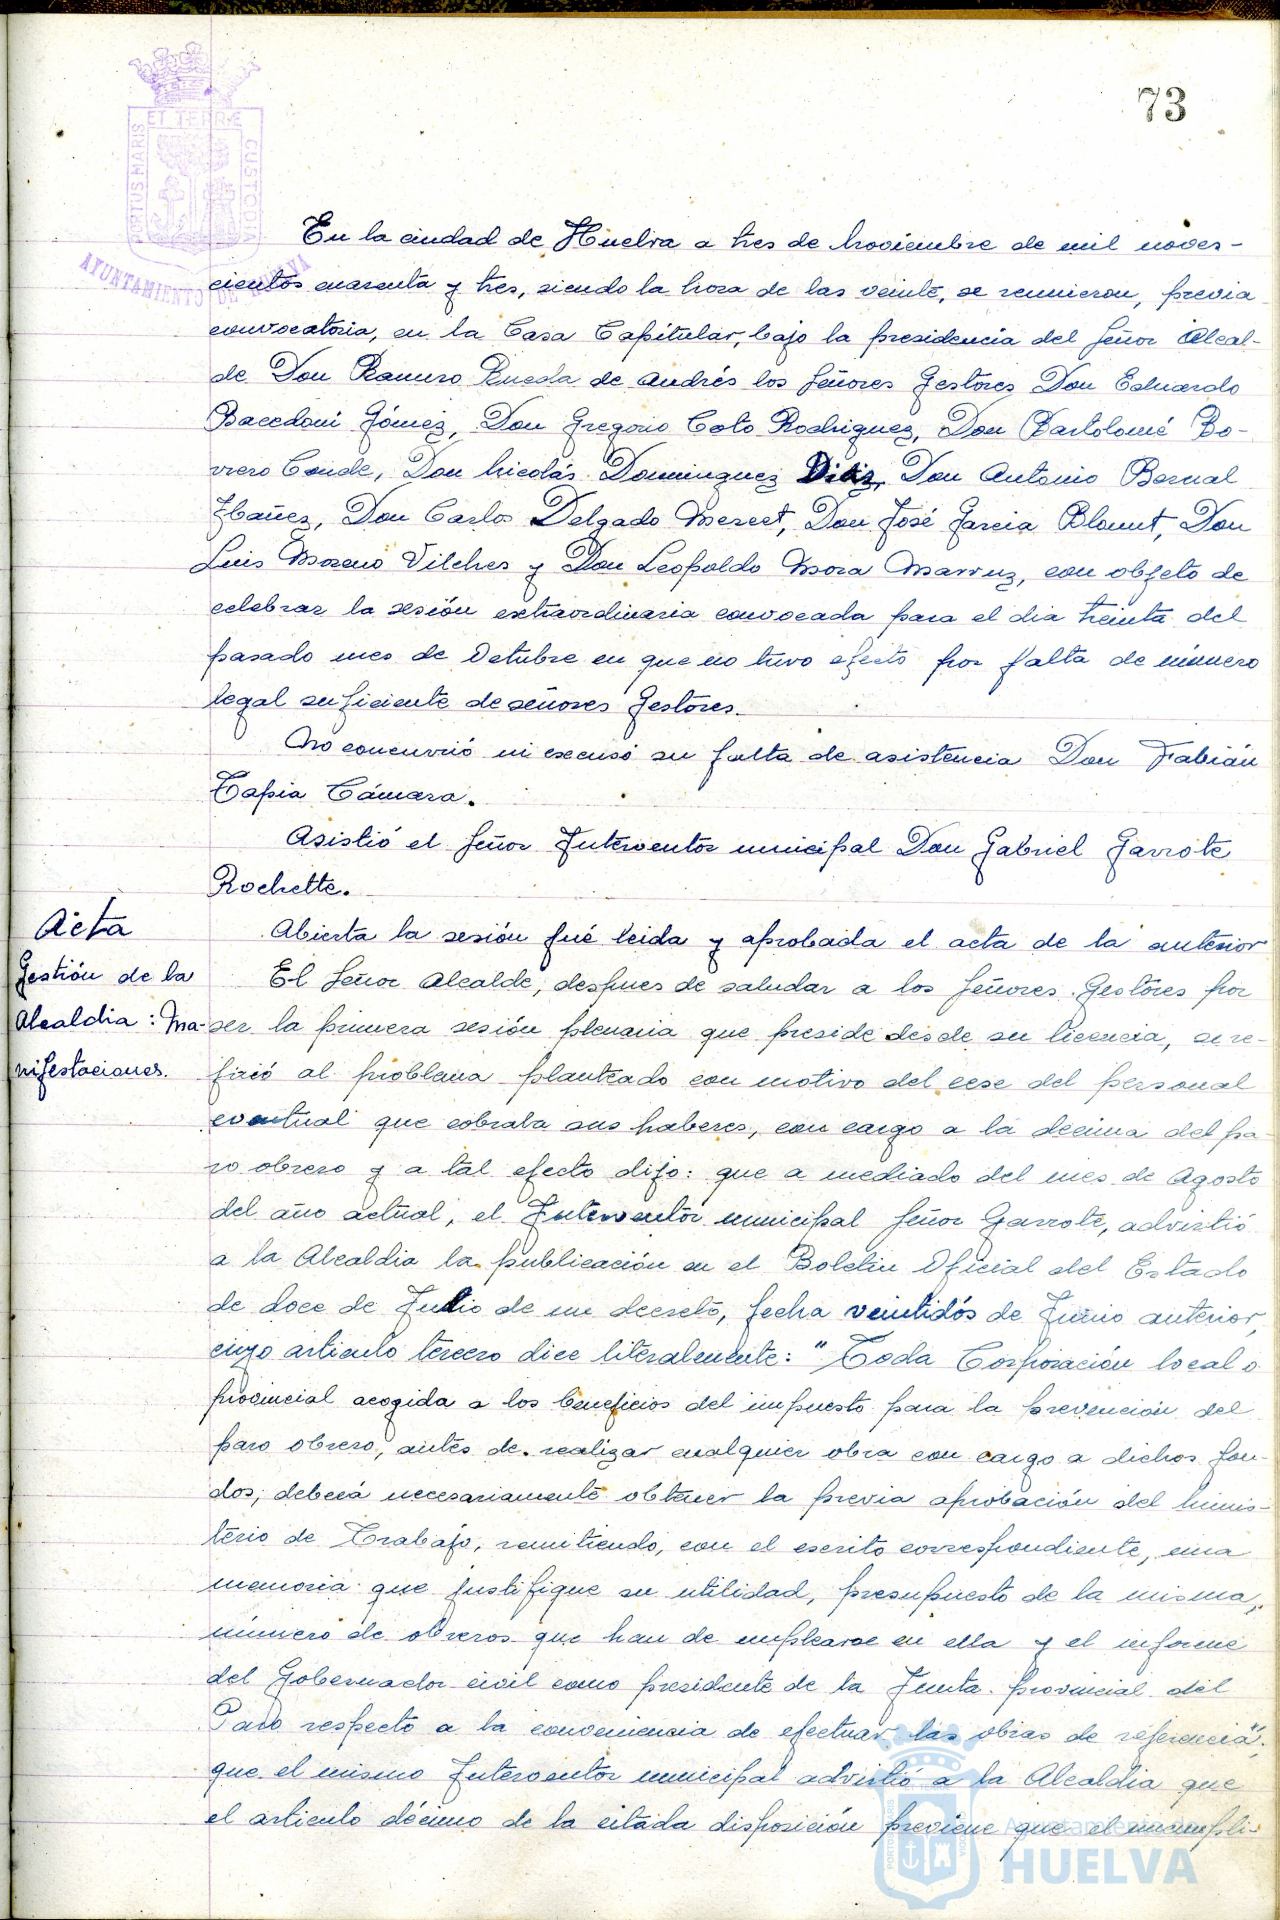 73
PORTUS MARIS
ET TERRÆ
CUSTODIA
AYUNTAMIENTO DE HUELVA
En la ciudad de Huelva a tres de Noviembre de mil noves-
cientos cuarenta y tres, siendo la hora de las veinte, se reunieron, previa
convocatoria, en la Casa Capitular, bajo la presidencia del Señor Alcal-
de Don Ramiro Rueda de Andrés los Señores Gestores Don Eduardo
Bacedoni Gómez, Don Gregorio Coto Rodriguez, Don Bartolomé Bo-
rrero Conde, Don Nicolás Dominguez Diaz, Don Antonio Bernal
Ibañez, Don Carlos Delgado Mercet, Don José Garcia Blount, Don
Luis Moreno Vilches y Don Leopoldo Mora Marruz, con objeto de
celebrar la sesión extraordinaria convocada para el dia treinta del
pasado mes de Octubre en que no tuvo efecto por falta de número
legal suficiente de señores Gestores.
No concurrió ni excusó su falta de asistencia Don Fabián
Tapia Cámara.
Asistió el Señor Interventor municipal Don Gabriel Garrote
Rochette.
Acta
Abierta la sesión fué leida y aprobada el acta de la anterior
Gestión de la
Alcaldia: Ma-
nifestaciones.
El Señor Alcalde, despues de saludar a los Señores Gestores por
ser la primera sesión plenaria que preside desde su licencia, se re-
firió al problema planteado con motivo del cese del personal
eventual que cobraba sus haberes, con cargo a la decima del pa-
ro obrero y a tal efecto dijo: que a mediado del mes de Agosto
del año actual, el Interventor municipal Señor Garrote, advirtió
a la Alcaldia la publicación en el Boletin Oficial del Estado
de doce de Julio de un decreto, fecha veintidós de Junio anterior,
cuyo articulo tercero dice literalmente: "Toda Corporación local o
provincial acogida a los beneficios del impuesto para la prevención del
paro obrero, antes de realizar cualquier obra con cargo a dichos fon-
dos, deberá necesariamente obtener la previa aprobación del Minis-
terio de Trabajo, remitiendo, con el escrito correspondiente, una
memoria que justifique su utilidad, presupuesto de la misma,
número de obreros que han de emplearse en ella y el informe
del Gobernador civil como presidente de la Junta provincial del
Paro respecto a la conveniencia de efectuar las obras de referencia";
que el mismo Interventor municipal advirtió a la Alcaldia que
el articulo décimo de la citada disposición previene que el incumpli-
Ayuntamiento de
HUELVA